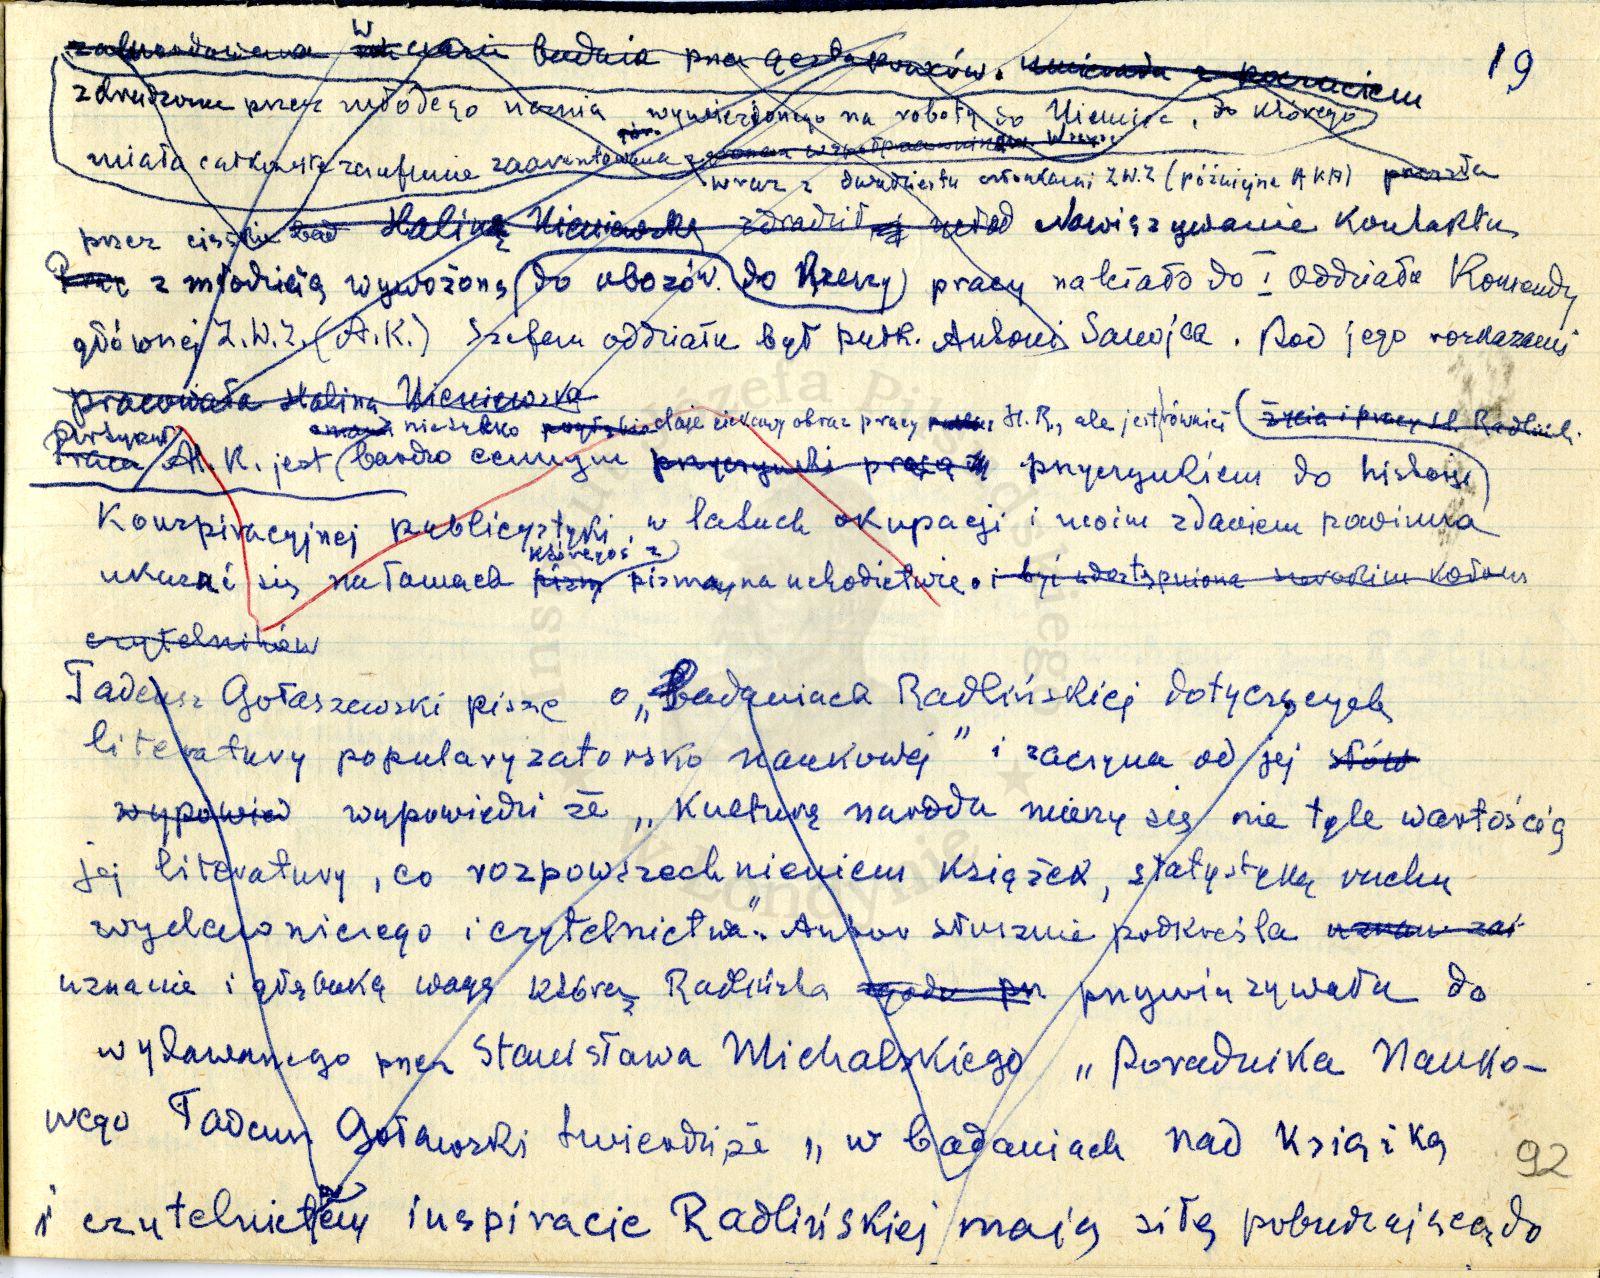 19
w czasie badnia przez gestapowców.
zdradzona przez młodego ucznia wywiezionego na roboty do Niemiec, do którego
miała całkowite zaufanie zaaresztowana
wraz z dwudziestu członkami Z.W.Z (później A K) przeszła
przez ciężkie Halinę Nieniewską zdradził Nawiązywanie kontaktu
z młodzieżą wywożoną do obozów do Rzeszy pracy należało do I Oddziału Komendy
głównej Z.W.Z. (A.K.) Szefem oddziału był pułk. Antoni Sanojca. Pod jego rozkazami
pracowała Halina Nieniewska
nie tylko daje ciekawy obraz pracy H. R., ale jest również życia i pracy H. Radliń.
Praca H. R. jest bardzo cennym przyczynkiem do historii
Konspiracyjnej publicystyki w latach okupacji i moim zdaniem powinna
któregoś z
ukazać się na łamach pism pisma na uchodźctwie i być udostępniona szerokim kołom
czytelników
Tadeusz Gołaszewski pisze o „Badaniach Radlińskiej dotyczących
literatury popularyzatorsko naukowej" i zaczyna od jej słów
wypowied wypowiedzi że „Kulturę narodu mierzy się nie tyle wartością
jej literatury, co rozpowszechnieniem książek, statystyką ruchu
wydawniczego i czytelnictwa". Autor słusznie podkreśla
uznanie i głęboką wagę którą Radlińska przywiązywała do
wydawanego przez Stanisława Michalskiego „Poradnika Nauko-
wego Tadeusz Gołaszewski twierdzi że „w badaniach nad książką
92
i czytelnictwem inspiracje Radlińskiej mają siłę pobudzającą do
Instytut Józefa Piłsudskiego
w Londynie